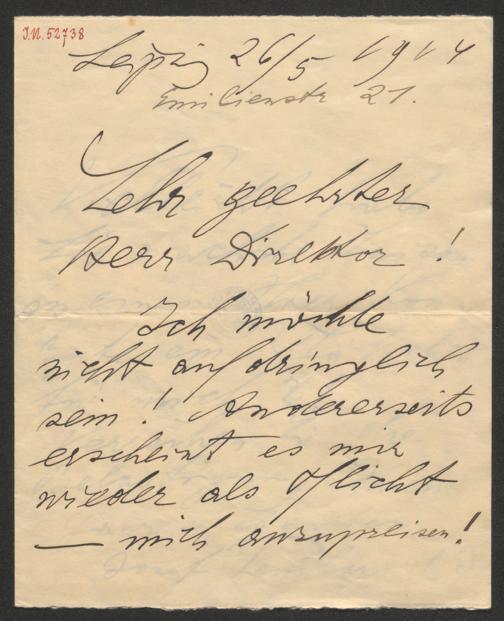 J.N. 52738
Leipzig 26/5 1914
Emilienstr 21.
Sehr geehrter
Herr Direktor!
Ich möchte
nicht aufdringlich
sein! Andererseits
erscheint es mir
wieder als Pflicht
— mich anzupreisen!